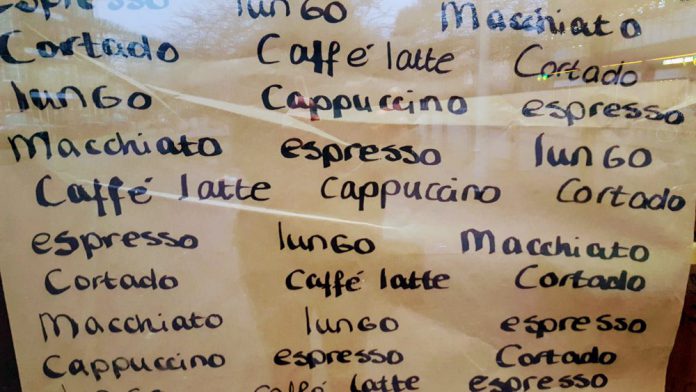 espresso lungo Macchiato
Cortado Caffé latte Cortado
lungo Cappuccino espresso
Macchiato espresso lungo
Caffé latte Cappuccino Cortado
espresso lungo Macchiato
Cortado Caffé latte Cortado
Macchiato lungo espresso
Cappuccino espresso Cortado
lungo Caffé latte espresso